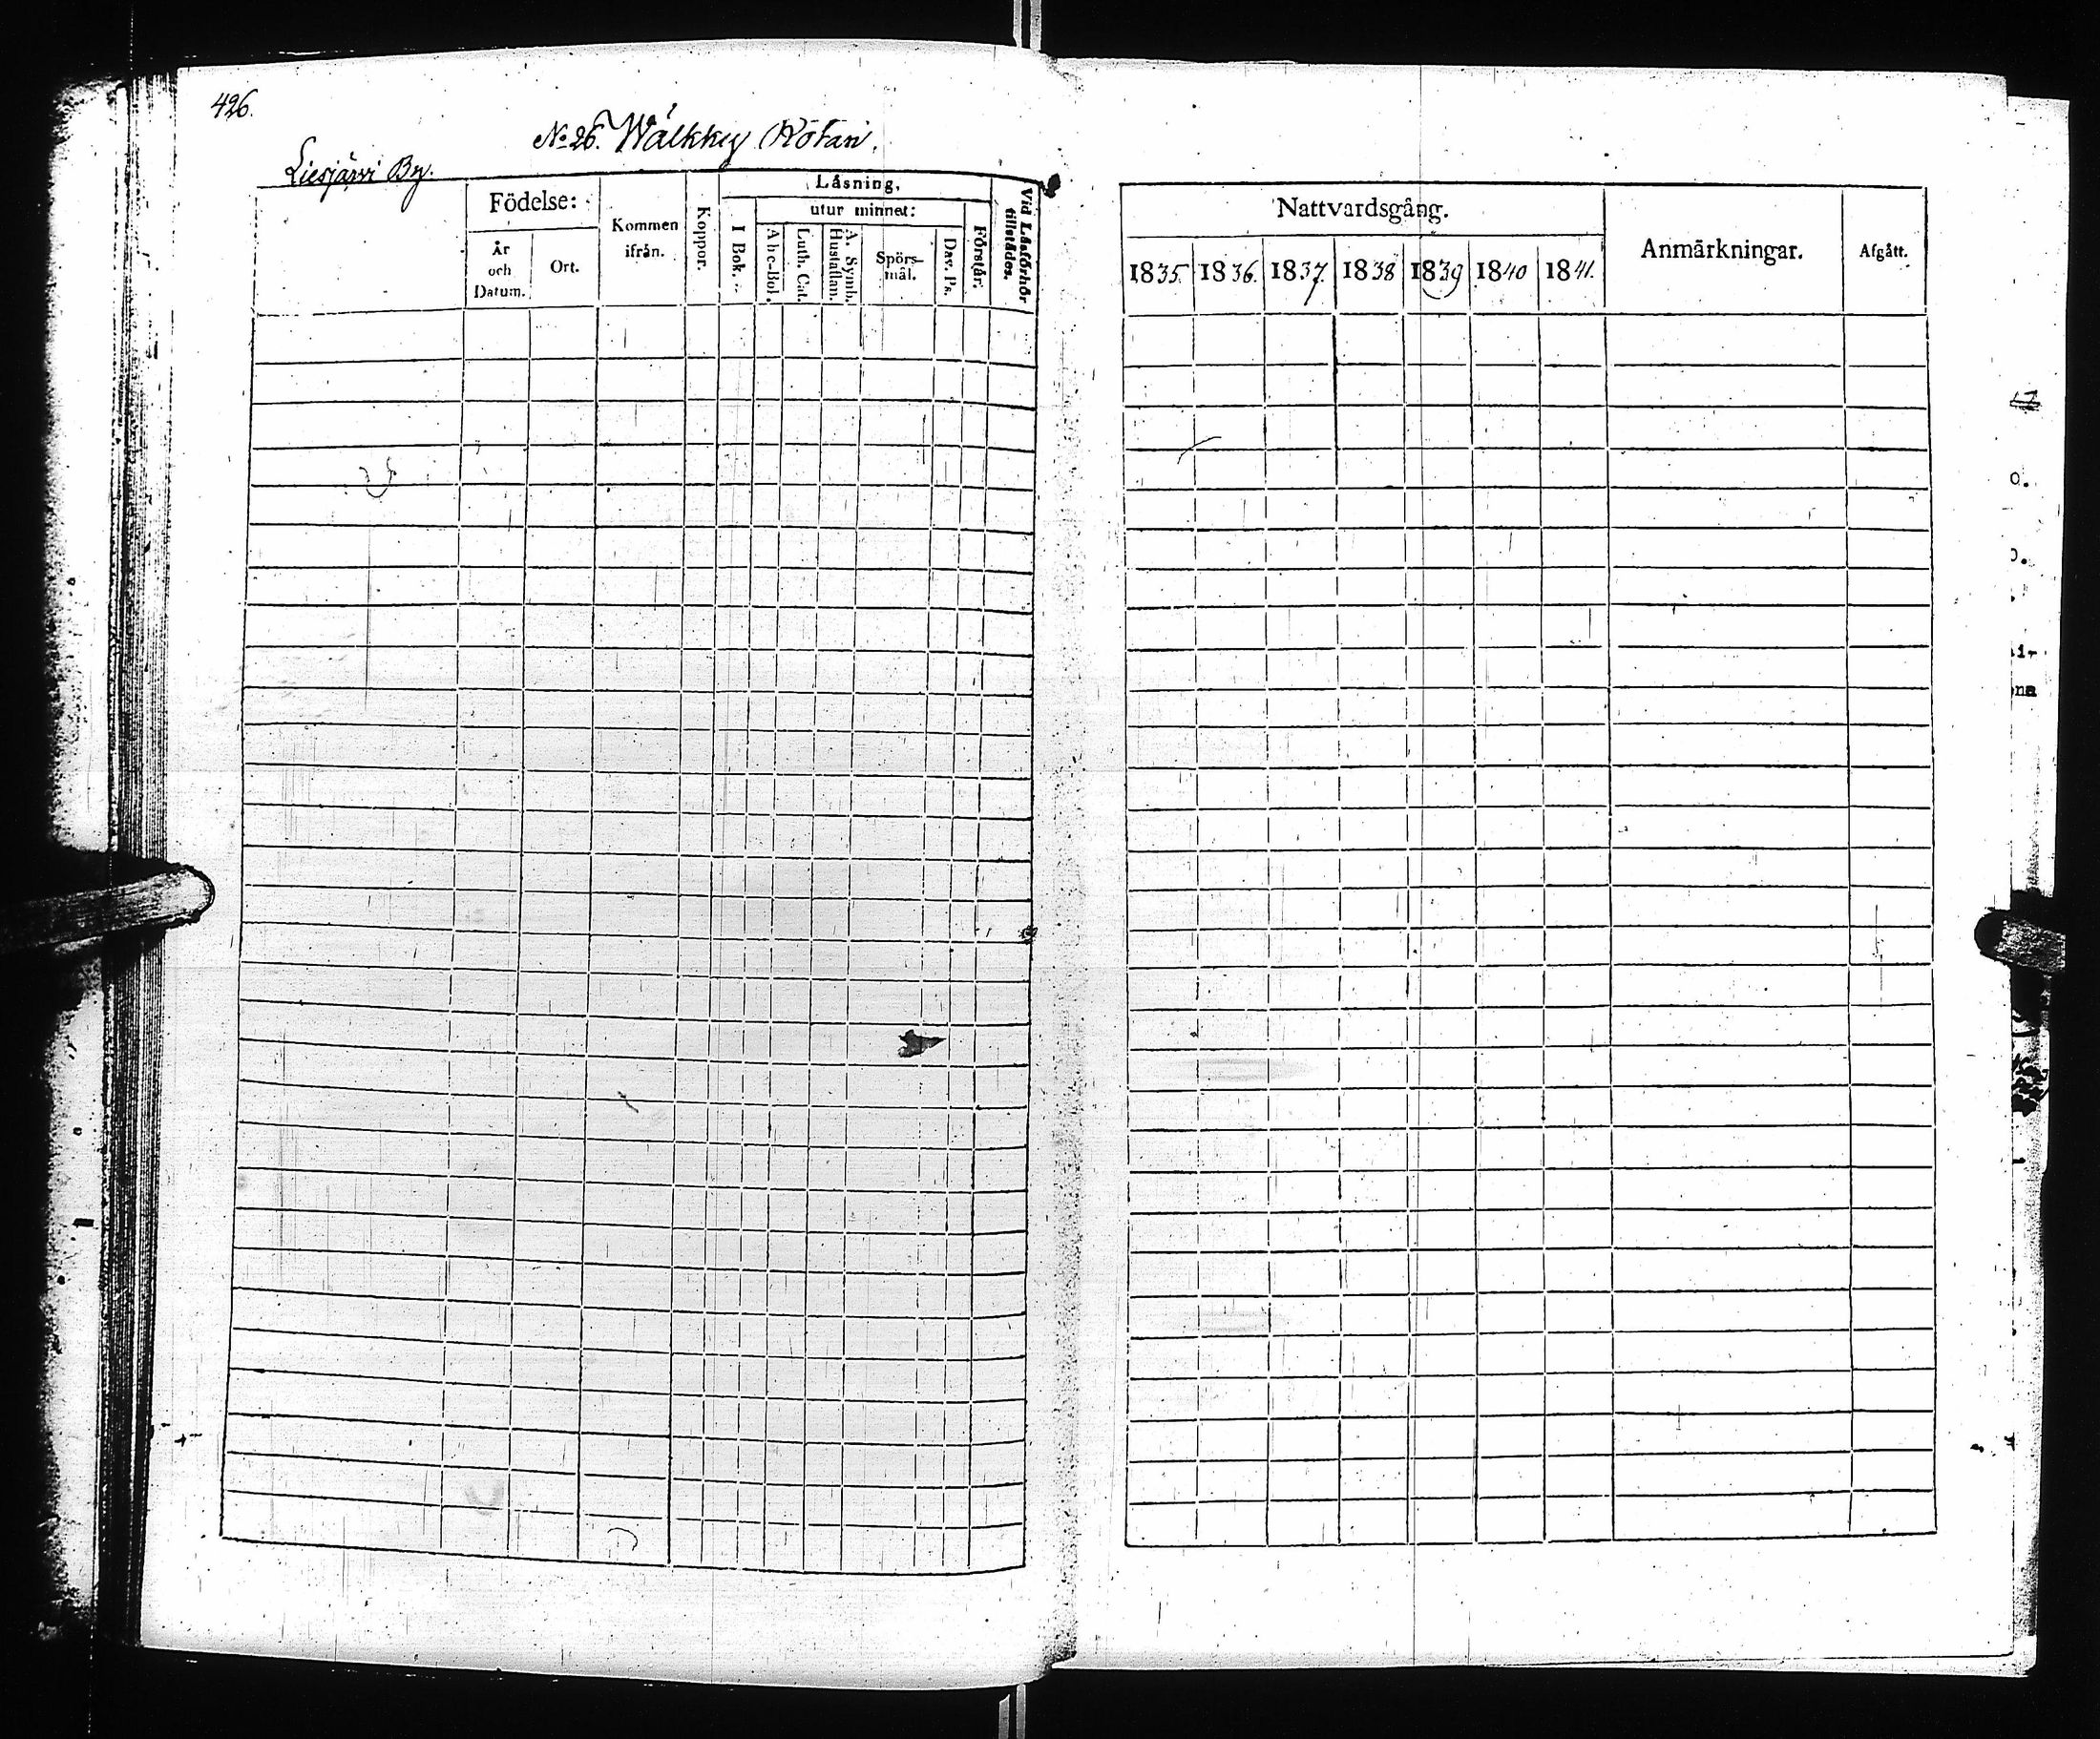 426.
No 26. Wälkky Kotari.
Liesjärvi By.
Födelse:
År och Datum.
Ort.
Kommen ifrån.
Koppor.
Läsning,
I Bok.
utur minnet:
Abc-Bok.
Luth. Cat.
A. Symb. Hustaflan.
Spörs-mål.
Dav. Ps.
Förstår.
Vid Läsförhör tillstädes.
Nattvardsgång.
1835. 1836. 1837. 1838 1839 1840 1841.
Anmärkningar.
Afgått.
17
0.
na